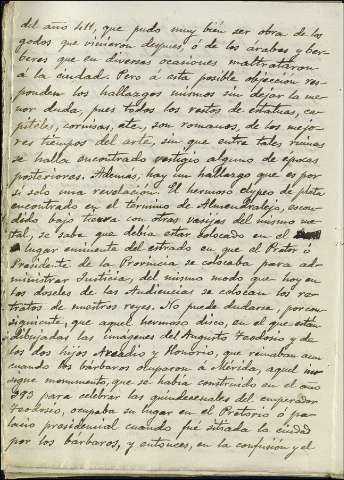 del año 411, que pudo muy bien ser obra de los
godos que vinieron despues, ó de los arabes y ber-
beres que en diversas ocasiones maltrataron
á la ciudad. Pero á esta posible objección res-
ponden los hallazgos mismos sin dejar la me-
nor duda, pues todos los restos de estatuas, ca-
piteles, cornisas, etc., son romanos, de los mejo-
res tiempos del arte, sin que entre tales ruinas
se halla encontrado vestigio alguno de épocas
posteriores. Ademas, hay un hallazgo que es por
si solo una revelación. El hermoso clypeo de plata
encontrado en el término de Almendralejo, escon-
dido bajo tierra con otras vasijas del mismo me-
tal, se sabe que debia estar colocado en el
lugar eminente del estrado en que el Pretor ó
Presidente de la Provincia se colocaba para ad-
ministrar Justicia, del mismo modo que hoy en
los doseles de las Audiencias se colocan los re-
tratos de nuestros reyes. No puede dudarse, por con-
siguiente, que aquel hermoso disco, en el que están
dibujadas las imágenes del Augusto Teodosio y de
los dos hijos Arcadio y Honorio, que reinaban aun
cuando los bárbaros ocuparon á Mérida, aquel in-
signe monumento, que se habia construido en el año
393 para celebrar las quindecenales del emperador
Teodosio, ocupaba su lugar en el Pretorio ó pa-
lacio presidencial cuando fué sitiada la ciudad
por los bárbaros, y entonces, en la confusión y el